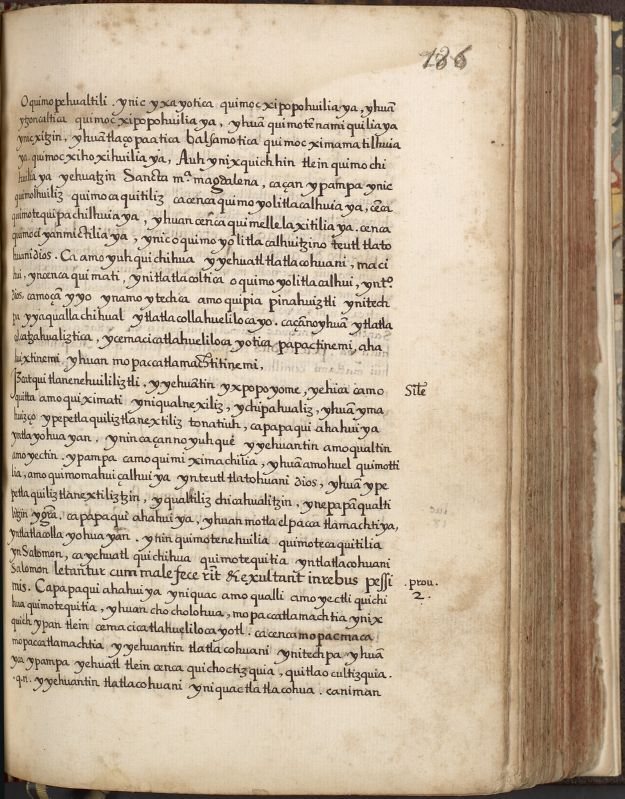 186
O quimopehualtili . ynic yxayotica quimocxipopohuilia ya, yhuā
ytzoncaltica quimocxipopohuilia ya, yhuā quimotēnamiquilia ya
ynicxitzin, yhuā tlaçopaatica balsamotica quimocximamatilhuia
ya. quimocxihoxihuilia ya, Auh ynixquich hin tlein quimochi
huilia ya yehuatzin Sancta mª magdalena, caçan ypampa ynic
quimolhuiliz quimocaquitiliz ca cenca quimoyolitlacalhuia ya, cēca
quimotequipachilhuia ya, yhuan cēca quimellelaxitilia ya. cenca
quimocỉyanmictilia ya, ynic o quimoyolitlacalhuitzino teutl tlato
huani dios. Ca amo yuh quichihua yyehuatl tlatlacohuani, maci
hui, yn cenca quimati, yn itlatlacoltica o quimoyolitlacalhui, yn tº
dios, camo çā yyo ynamo ytechca amo quipia pinahuiztli ynitech
pa yyaqualla chihual ytlatlacollahueliloca yo. caçānoyhuā ytlatla
colcatzahualiztica, ycemacicatlahuelilocayotica papactinemi, aha
huixtinemi, yhuan mopaccatlamachtitinemi,
Izcatqui tlanenehuililiztli, yyehuātin yxpopoyome, yehica camo
quitta amo quiximati yniqualnexiliz, ychipahualiz, yhuā yma
huizço ypepetlaquiliz tlanextiliz tonatiuh, ca papaqui ahahuiya
yntlayohuayan. ynin caçan no yuhquē yyehuantin amo qualtin
amo yectin. ypampa camo quimiximachilia, yhuā amo huel quimotti
lia, amo quimomahuiçalhuiya ynteutl tlatohuani dios, yhuā ype
petlaquiliz tlanextilitzin, yqualtiliz chicahualitzin, ynepapā qualti
litzin ygr̄a. ca papaqui ahahuiya, yhuan motlelpaccatlamachtiya,
yntlatlacolla yohuayan. yhin quimotenehuilia quimotecaquitilia
yn Salomon, ca yehuatl quichihua quimotequitia yntlatlacohuani
Salomon letantur cum male fecerīt & exultant in rebus pessi
mis. Ca papaqui ahahuiya yniquac amo qualli amo yectli quichi
hua quimotequitia, yhuan chocholohua, mopaccatlamachtia ynix
quich ypan tlein cemacicatlahuelilocayotl. ca cenca mopacmaca
mopaccatlamachtia yyehuantin tlatlacohuani ynitechpa yhuā
ya ypampa yehuatl tlein cenca quichoctizquia, quitlaocultizquia.
.q.n. yyehuantin tlatlacohuani yniquac tlatlacohua. caniman
Sīle
.prou.
2.